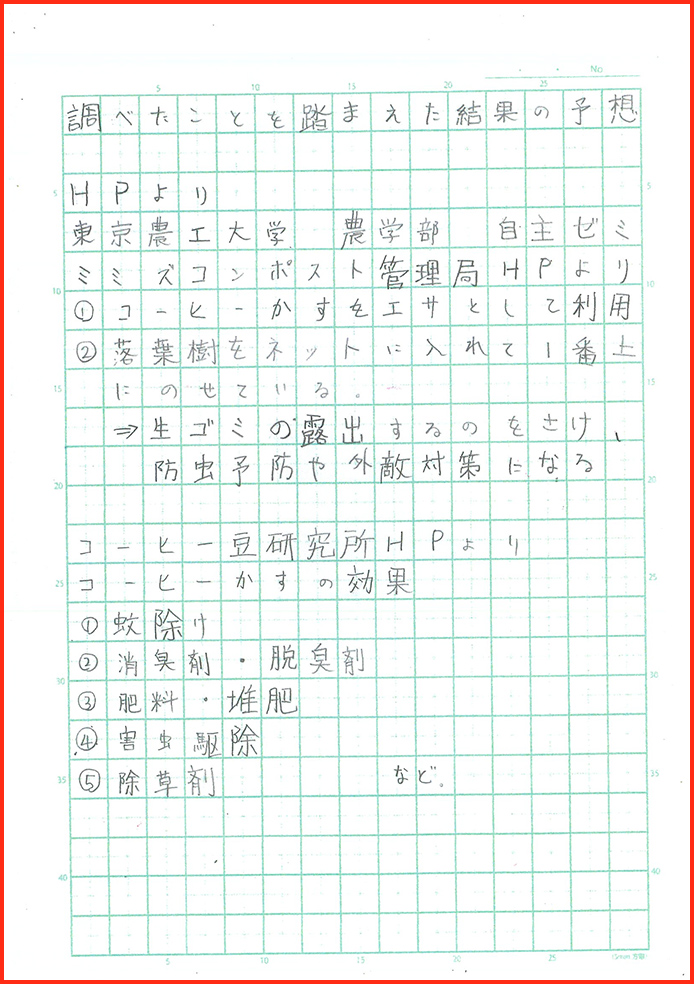 No
調べたことを踏まえた結果の予想
HPより
東京農工大学 農学部 自主ゼミ
ミミズコンポスト管理局HPより
①コーヒーかすをエサとして利用
②落葉樹をネットに入れて1番上
にのせている。
⇒生ゴミの露出するのをさけ、
防虫予防や外敵対策になる
コーヒー豆研究所HPより
コーヒーかすの効果
①蚊除け
②消臭剤・脱臭剤
③肥料・堆肥
④害虫駆除
⑤除草剤 など。